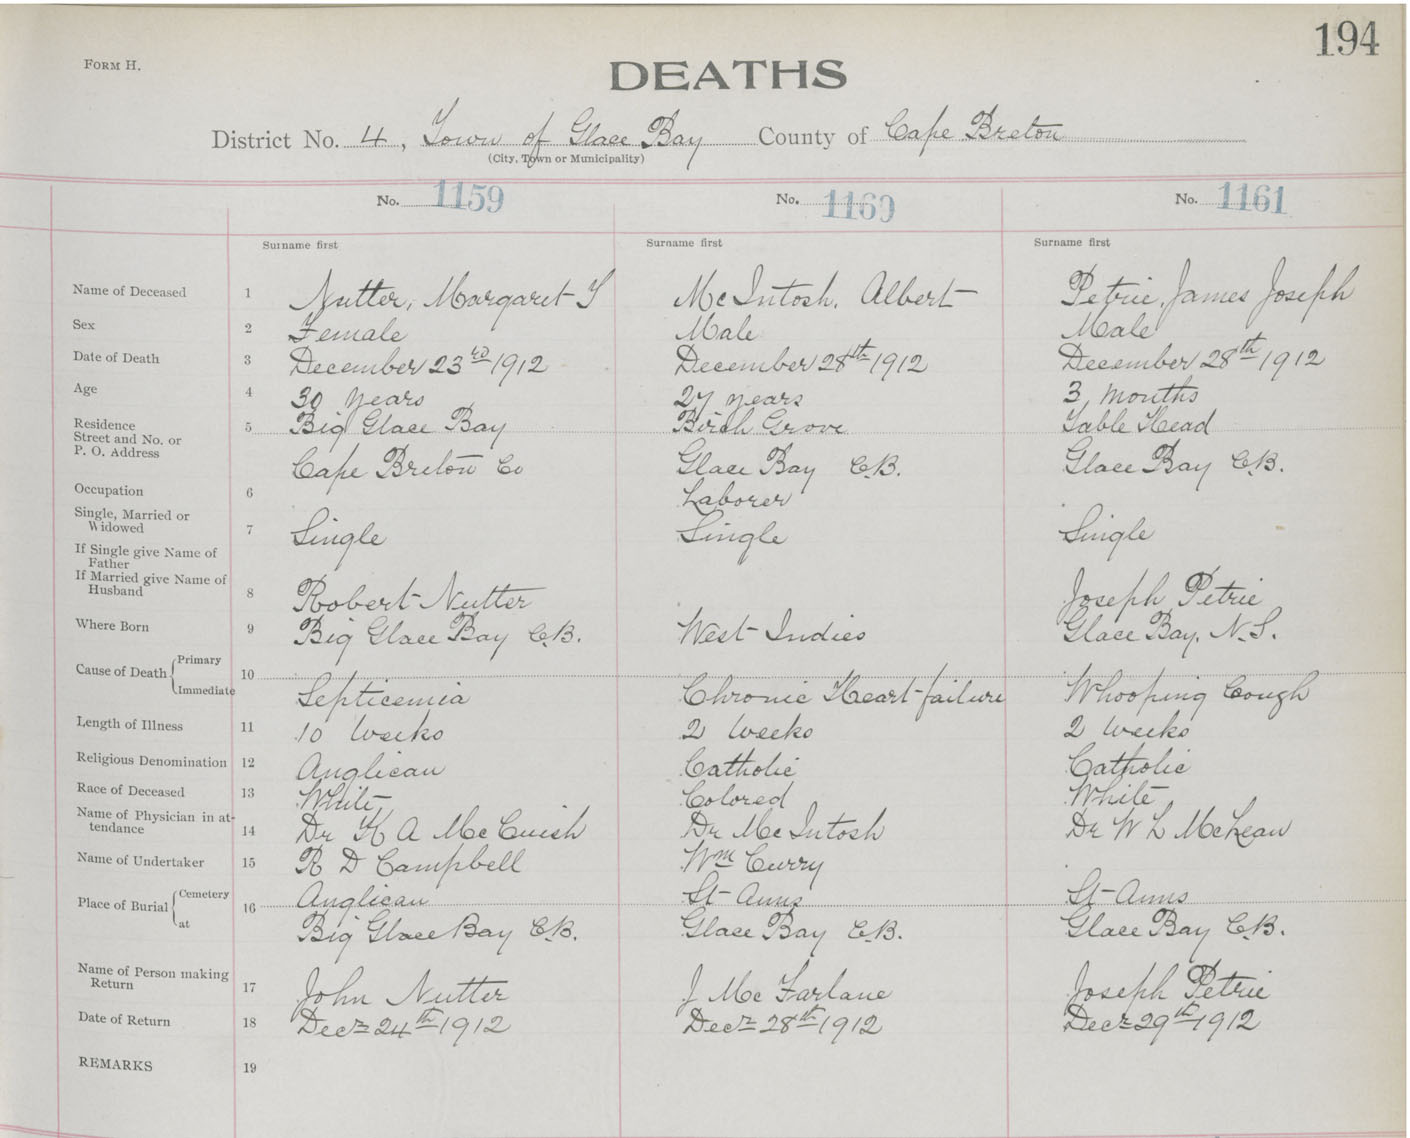 194
FORM H.
DEATHS
District No. 4, Town of Glace Bay County of Cape Breton
(City, Town or Municipality)
No. 1159 No. 1160 No. 1161
Surname first Surname first Surname first
Name of Deceased 1 Nutter, Margaret S McIntosh, Albert Petrie, James Joseph
Sex 2 Female Male Male
Date of Death 3 December 23rd 1912 December 28th 1912 December 28th 1912
Age 4 30 years 27 years 3 months
Residence
Street and No. or
P. O. Address
5 Big Glace Bay Birch Grove Table Head
Cape Breton Co Glace Bay C.B. Glace Bay C.B.
Occupation 6 Laborer
Single, Married or
Widowed
7 Single Single Single
If Single give Name of
Father
If Married give Name of
Husband
8 Robert Nutter Joseph Petrie
Where Born 9 Big Glace Bay C.B. West Indies Glace Bay, N.S.
Cause of Death Primary
Immediate
10 Septicemia Chronic Heart failure Whooping Cough
Length of Illness 11 10 Weeks 2 Weeks 2 Weeks
Religious Denomination 12 Anglican Catholic Catholic
Race of Deceased 13 White Colored White
Name of Physician in at-
tendance
14 Dr K A McCuish Dr McIntosh Dr W L McLean
Name of Undertaker 15 R D Campbell Wm Curry
Place of Burial Cemetery
at
16 Anglican St Anns St Anns
Big Glace Bay C.B. Glace Bay C.B. Glace Bay C.B.
Name of Person making
Return
17 John Nutter J McFarlane Joseph Petrie
Date of Return 18 Decr 24th 1912 Decr 28th 1912 Decr 29th 1912
REMARKS 19